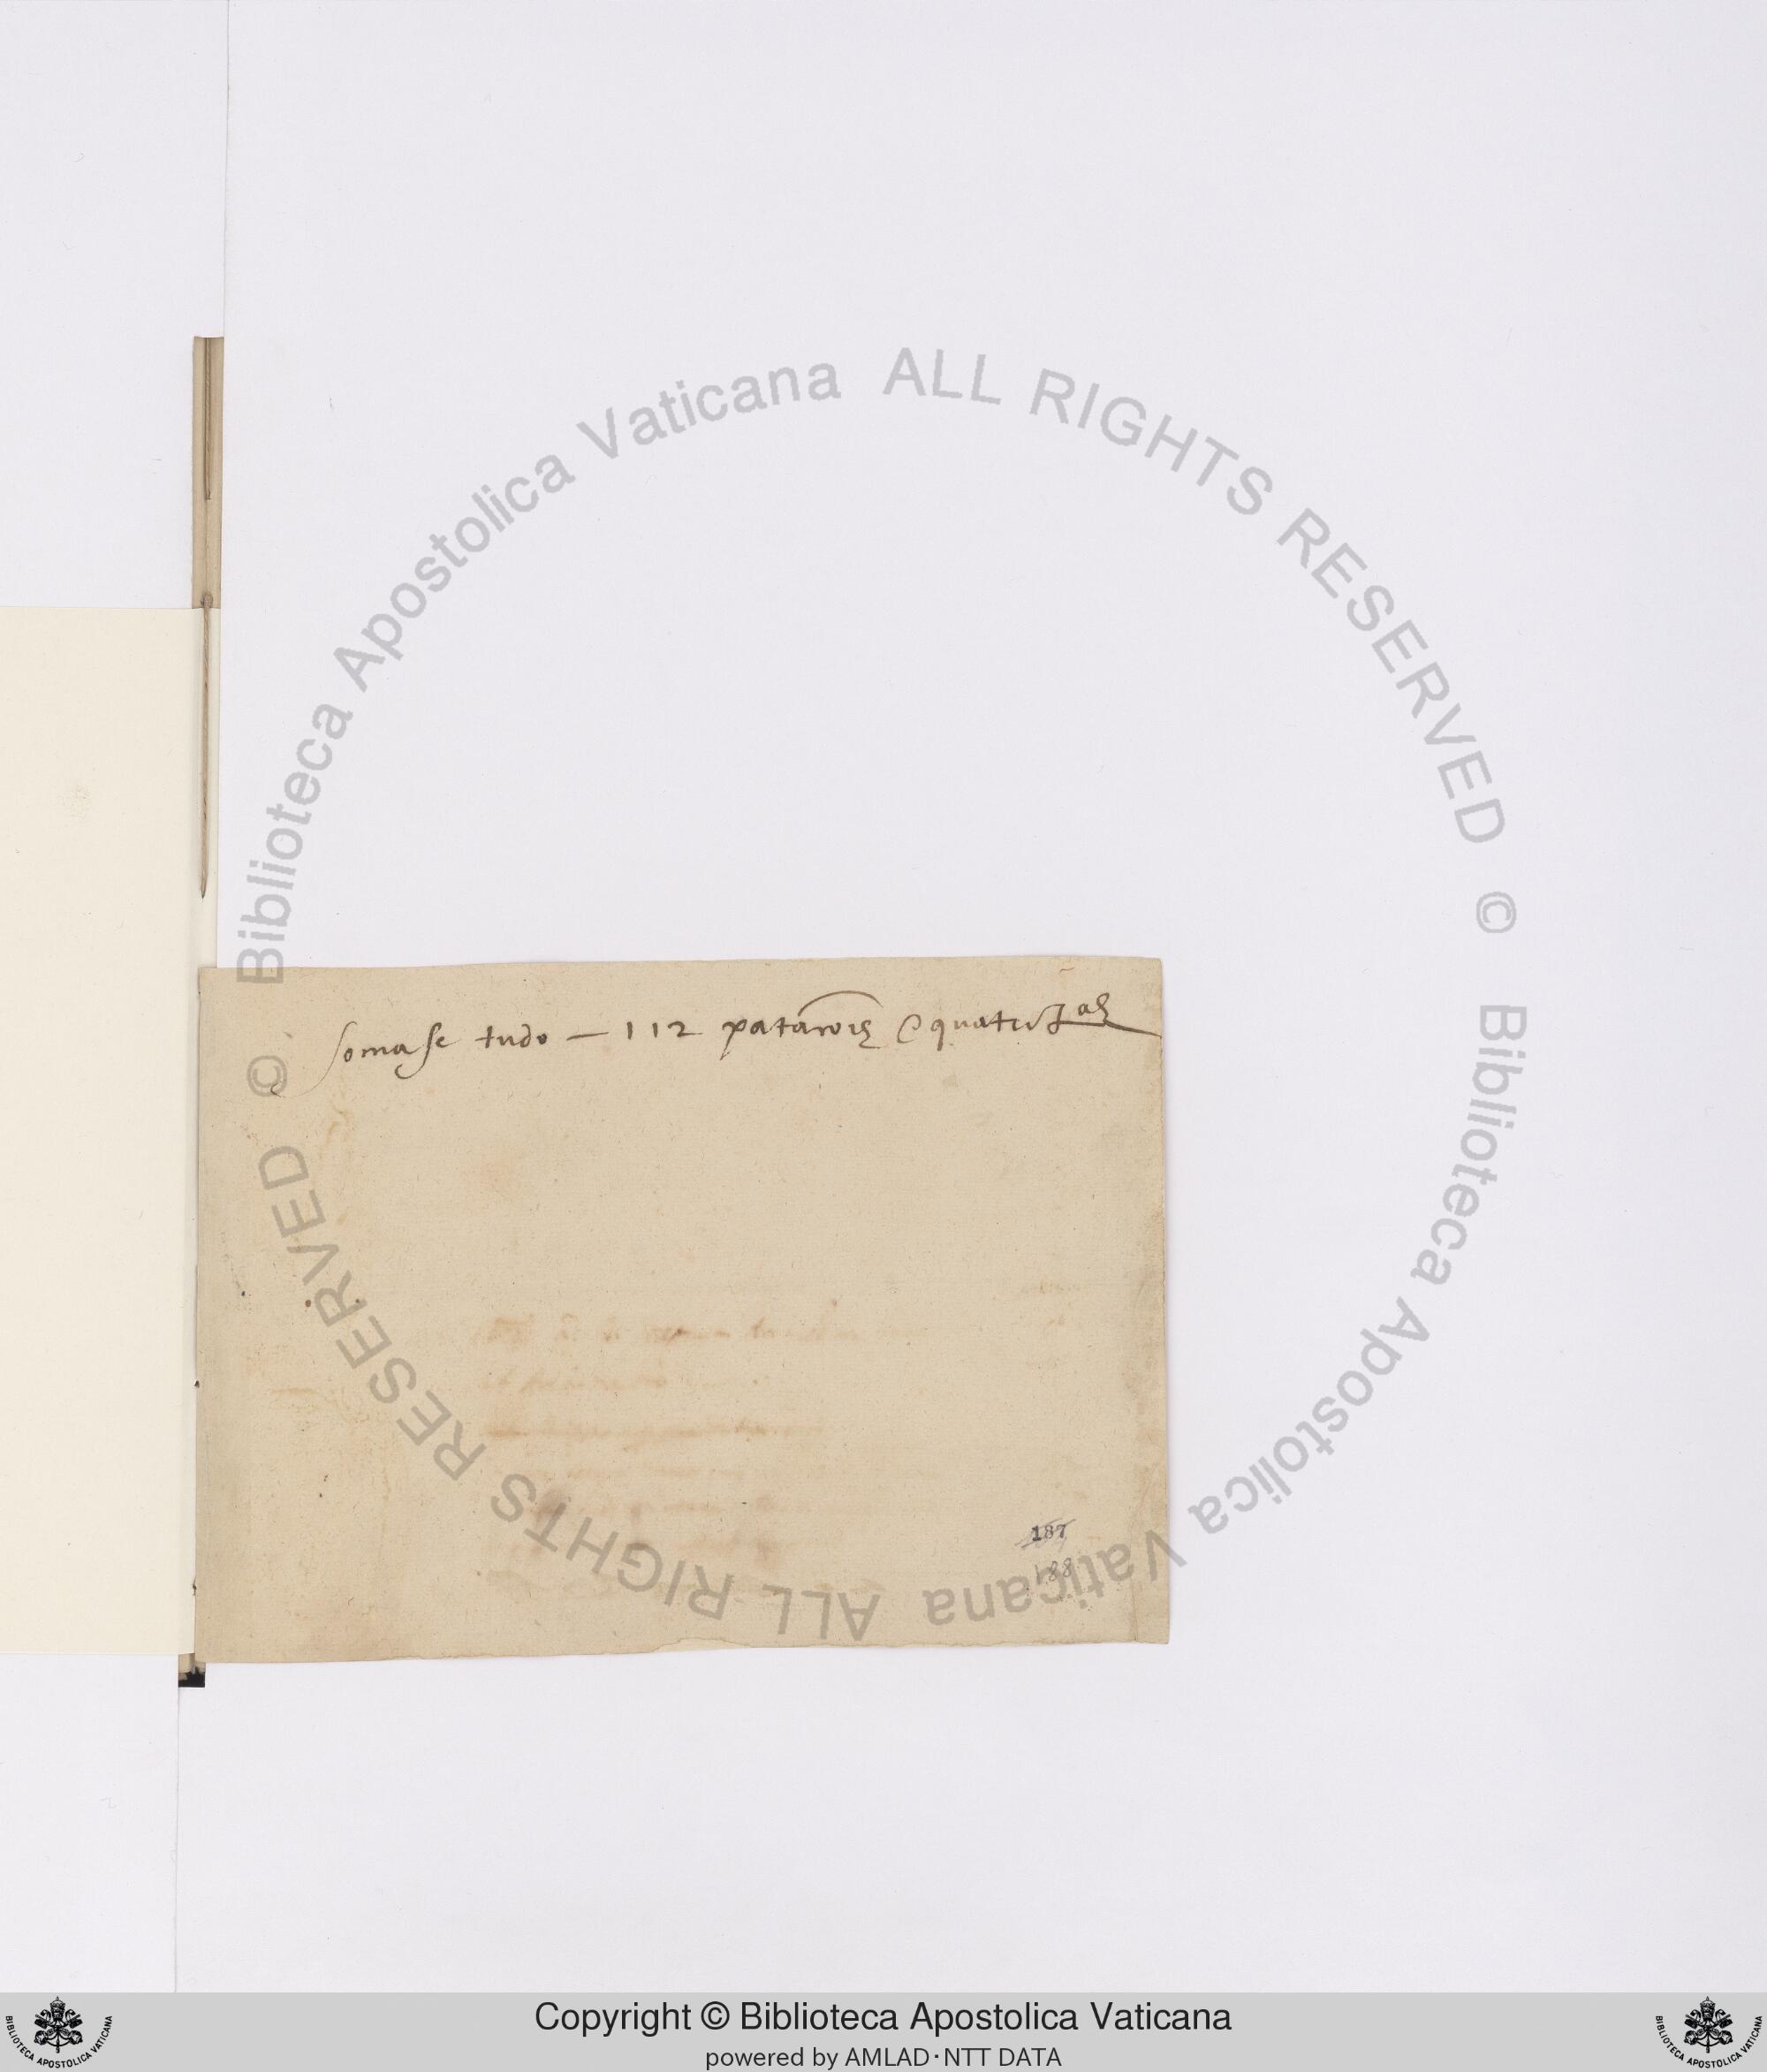 somase tudo — 112 patacois e quatro
187
188
© Biblioteca Apostolica Vaticana ALL RIGHTS RESERVED © Biblioteca Apostolica Vaticana ALL RIGHTS RESERVED
BIBLIOTECA APOSTOLICA VATICANA
Copyright © Biblioteca Apostolica Vaticana
powered by AMLAD·NTT DATA
BIBLIOTECA APOSTOLICA VATICANA